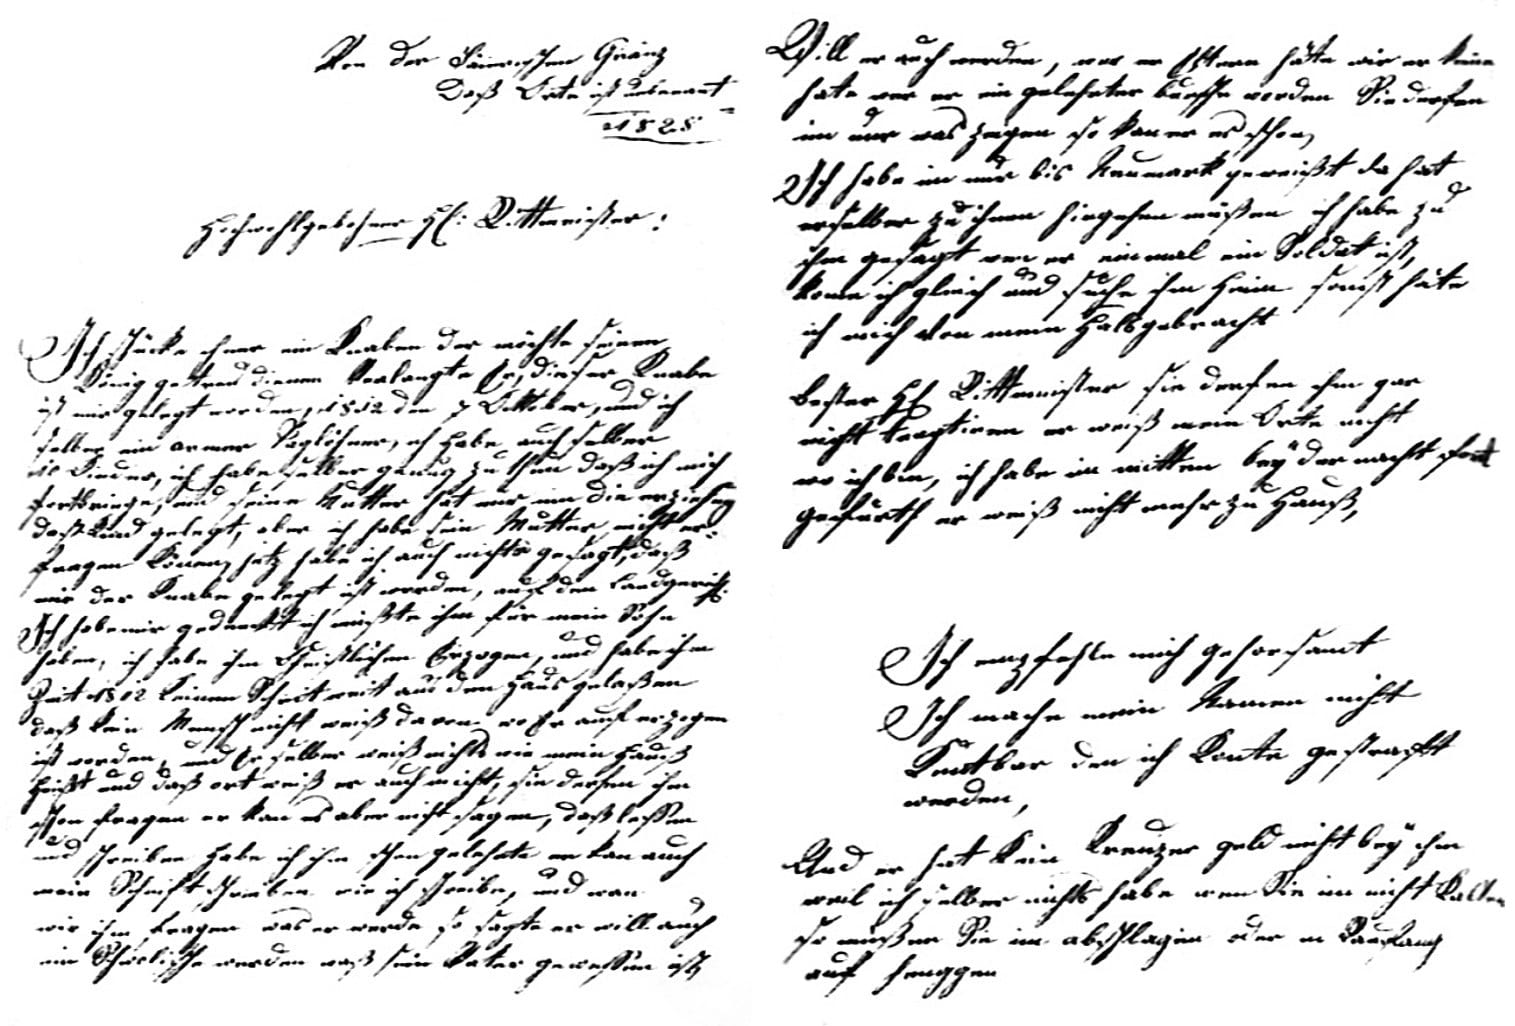 Von der Bäierischen Gränz
daß Orte ist unbenant
1828
Hochwohlgebohner Hl: Rittmeister!
Ich schücke ihner ein Knaben der möchte seinen
König getreu dienen Verlangte Er, dieser Knabe
ist mir gelegt worden, 1812 den 7 Ocktober, und ich
selber ein armer Taglöhner, ich habe auch selber
10 Kinder, ich habe selber genug zu thun daß ich mich
fortbringe, und seine Mutter hat mir um die erziehung
daß Kind gelegt, aber ich habe sein Mutter nicht er-
fragen Könen, jetz habe ich auch nichts gesagt, daß
mir der Knabe gelegt ist worden, auf den Landgericht.
Ich habe mir gedenckt ich müßte ihm für mein Sohn
haben, ich habe ihm Christlichen Erzogen, und habe ihm
Zeit 1812 Keinen Schrit weit aus den Haus gelaßen
daß Kein Mensch nicht weiß davon wo Er auf erzogen
ist worden, und Er selber weiß nichts wie mein Hauß
Heißt und daß ort weiß er auch nicht, sie derfen ihm
schon fragen er kan es aber nicht sagen, daß lessen
und schreiben Habe ich ihm schon gelehrte er kan auch
mein Schrift schreiben wie ich schreibe, und wan
wir ihm fragen was er werde so sagte er will auch
ein Schwolische werden waß sein Vater gewessen ist
Will er auch werden, wer er Eltern häte wie er keine
hate wer er ein gelehrter bursche worden. Sie derfen
im nur was zeigen so kan er es schon.
Ich habe im nur bis Neumark geweißt da hat
er selber zu ihnen hingehen müßen ich habe zu
ihm gesagt wen er einmal ein Soldat ist,
kome ich gleich und suche ihm Heim sonst häte
ich mich Von mein Hals gebracht
Bester Hl Rittmeister sie derfen ihm gar
nicht tragtiren er weiß mein Orte nicht
wo ich bin, ich habe im mitten bey der nacht fort
gefürth er weiß nicht mehr zu Hauß,
Ich empfehle mich gehorsamt
Ich mache mein Namen nicht
Kuntbar den ich Konte gestraft
werden,
Und er hat Kein Kreuzer geld nicht bey ihm
weil ich selber nichts habe wen Sie im nicht Kalten
so müßen Sie im abschlagen oder in Raufang
auf henggen